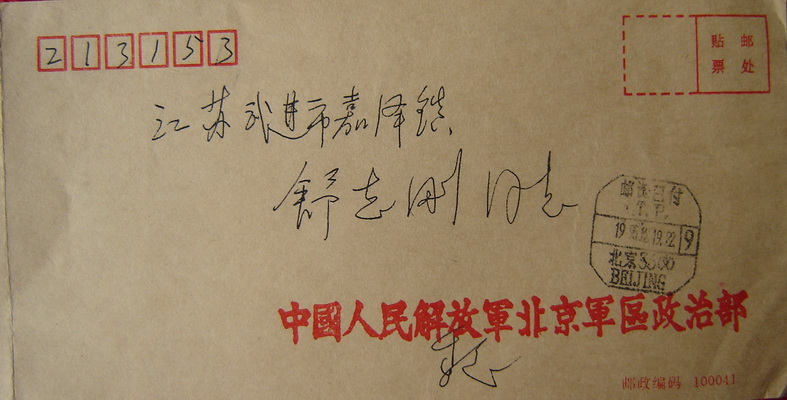 213153
贴 邮
票 处
江苏武进市嘉泽镇
舒志刚同志
邮资已付
北京
BEIJING
中國人民解放軍北京軍區政治部
邮政编码 100041